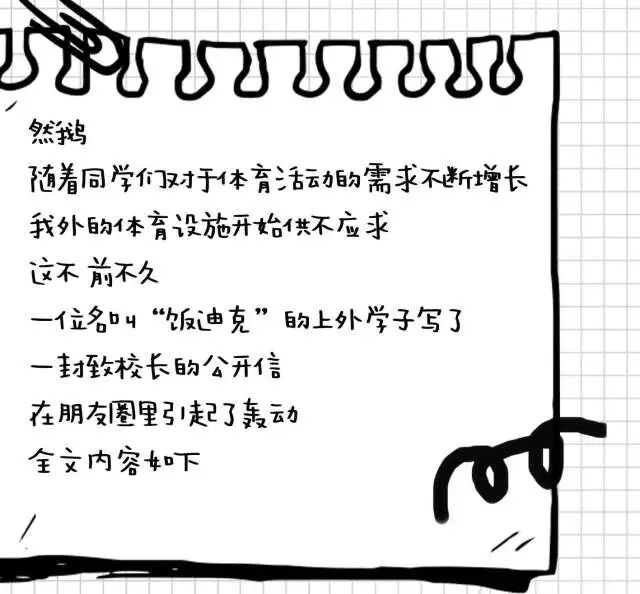 然鹅
随着同学们对于体育活动的需求不断增长
我外的体育设施开始供不应求
这不 前不久
一位名叫“饭迪克”的上外学子写了
一封致校长的公开信
在朋友圈里引起了轰动
全文内容如下